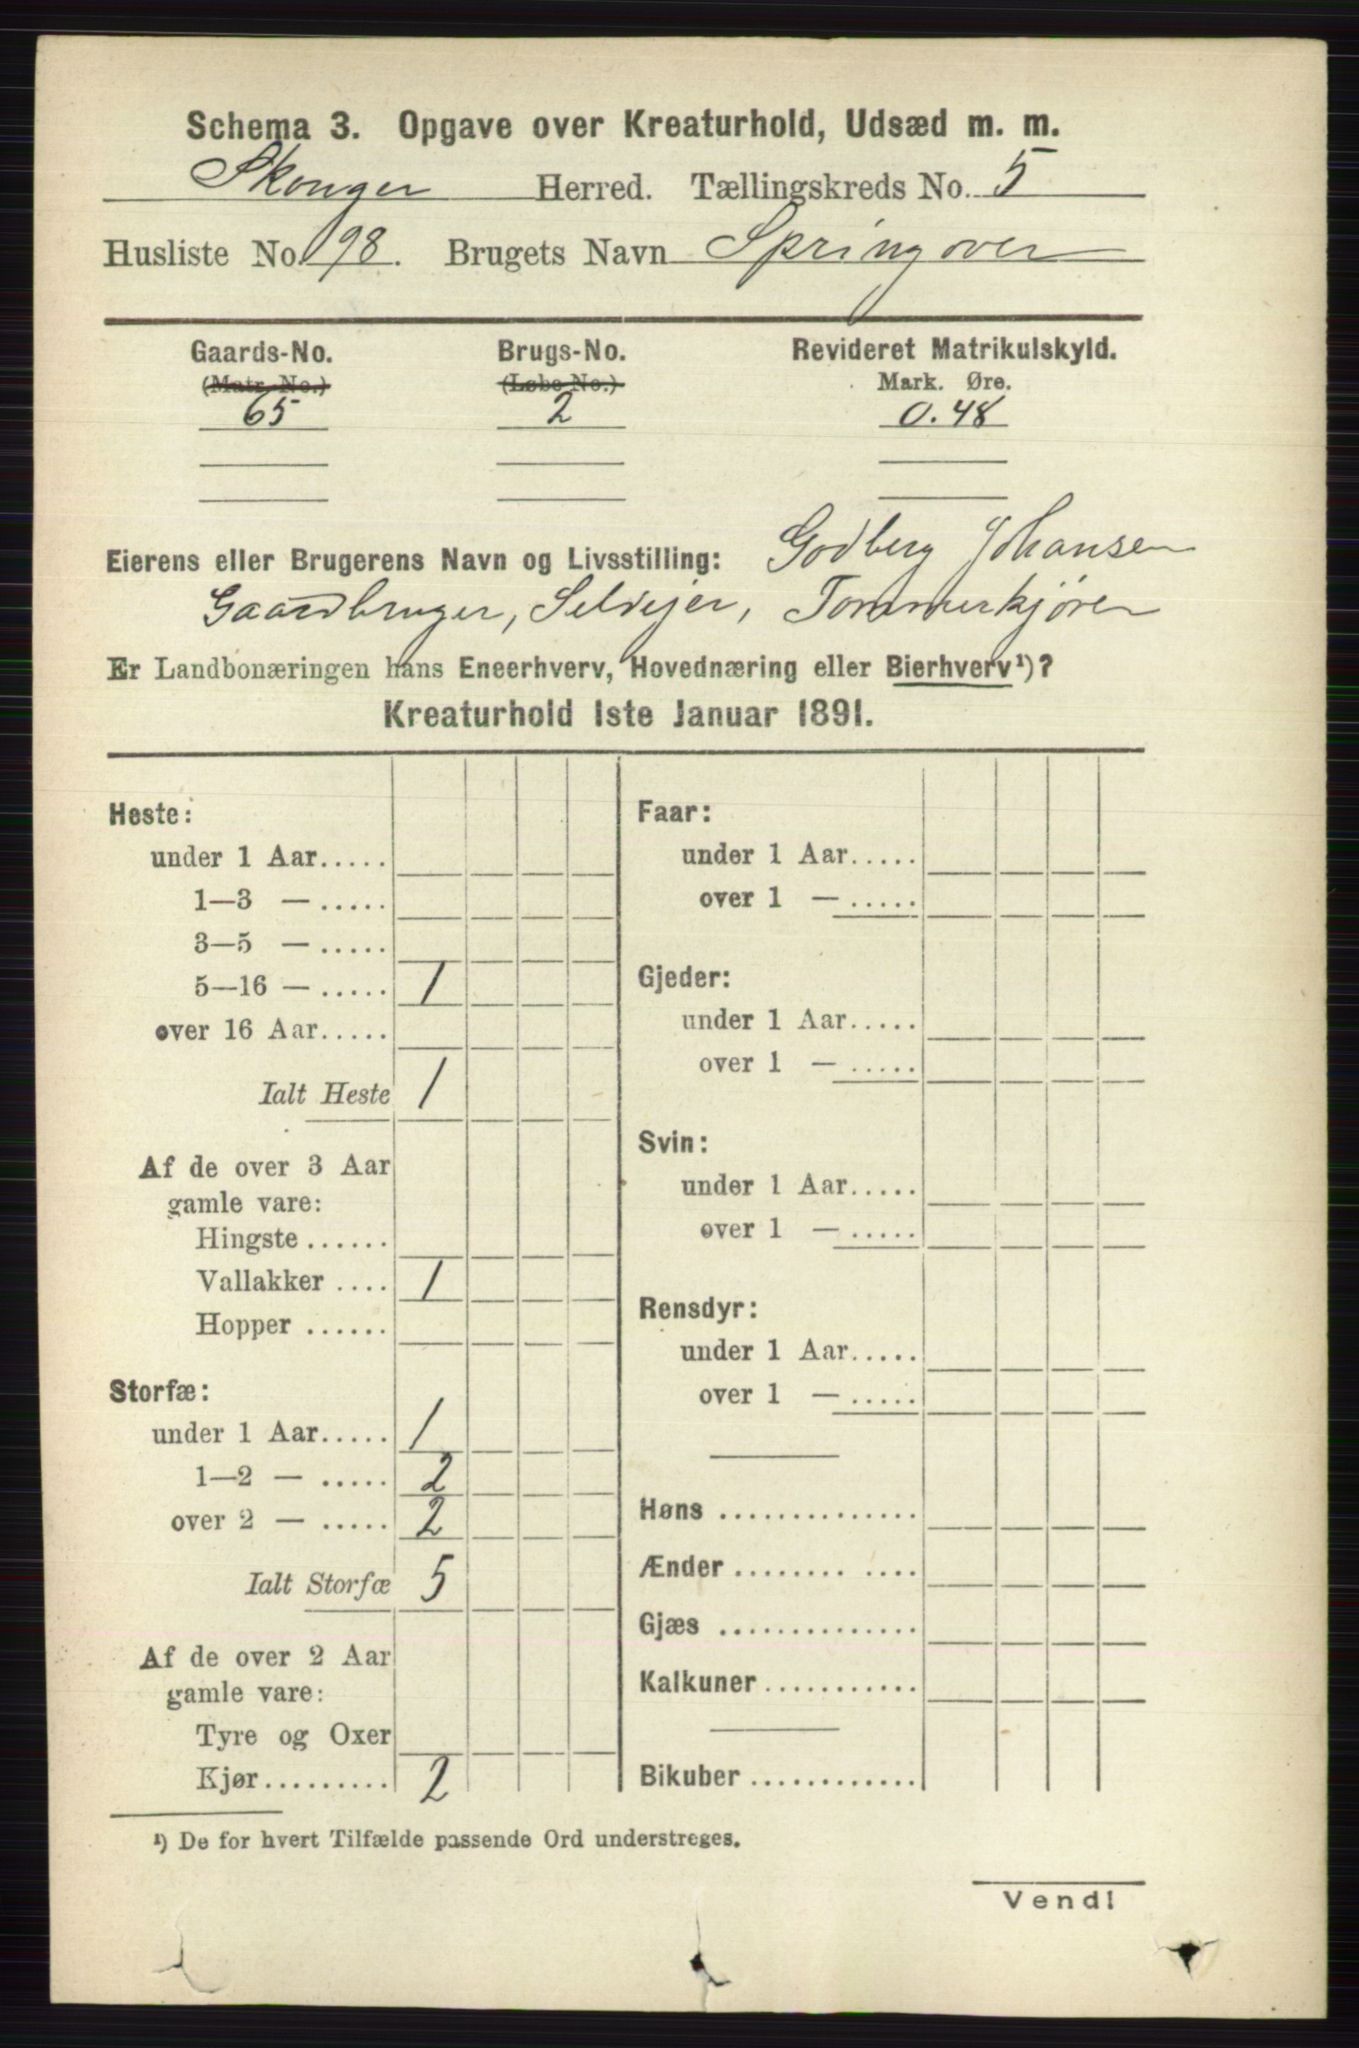 Schema 3. Opgave over Kreaturhold, Udsæd m. m.
Skouger Herred. Tællingskreds No. 5
Husliste No. 98. Brugets Navn Springover
Gaards-No. Brugs-No. Revideret Matrikulskyld.
(Matr. No.) (Løbe No.) Mark. Øre.
65 2 0.48
Eierens eller Brugerens Navn og Livsstilling: Godberg Johansen
Gaardbruger, Selvejer, Tømmerkjører
Er Landbonæringen hans Eneerhverv, Hovednæring eller Bierhverv¹)?
Kreaturhold 1ste Januar 1891.
Heste:
under 1 Aar.....
1—3 — .....
3—5 — .....
5—16 — ..... 1
over 16 Aar.....
Ialt Heste 1
Af de over 3 Aar
gamle vare:
Hingste ......
Vallakker .... 1
Hopper ......
Storfæ:
under 1 Aar..... 1
1—2 — ..... 2
over 2 — ..... 2
Ialt Storfæ 5
Af de over 2 Aar
gamle vare:
Tyre og Oxer
Kjør......... 2
Faar:
under 1 Aar.....
over 1 — .....
Gjeder:
under 1 Aar.....
over 1 — .....
Svin:
under 1 Aar.....
over 1 — .....
Rensdyr:
under 1 Aar.....
over 1 — .....
Høns ..............
Ænder ........ ....
Gjæs ..............
Kalkuner...........
Bikuber ............
¹) De for hvert Tilfælde passende Ord understreges.
Vend!